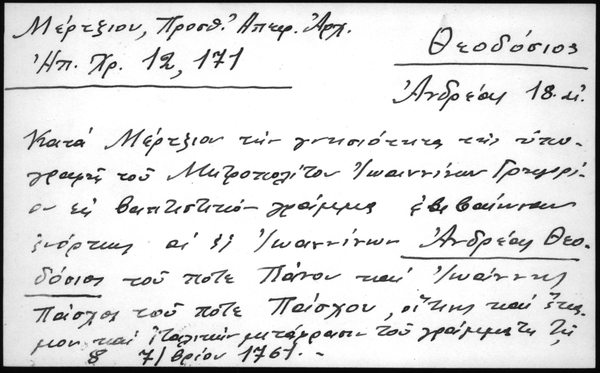 Μέρτζιου, Προσθ. Ἠπειρ. Ἀρχ.
Ἠπ. Χρ. 12, 171
Θεοδόσιος
Ἀνδρέας 18. αἰ.
Κατά Μέρτζιον τήν γνησιότητα τῆς ὑπο-
γραφῆς τοῦ Μητροπολίτου Ἰωαννίνων Γρηγορί-
ου εἰς βαπτιστικόν γράμμα ἐβεβαίωσαν
ἐνόρκως οἱ ἐξ Ἰωαννίνων Ἀνδρέας Θεο-
δόσιος τοῦ ποτε Πάνου καί Ἰωάννης
Πάσχος τοῦ ποτε Πάσχου, οἵτινες καί ἔκα-
μον καί ἰταλικήν μετάφρασιν τοῦ γράμματος τῇ
8 7/βρίου 1761. -